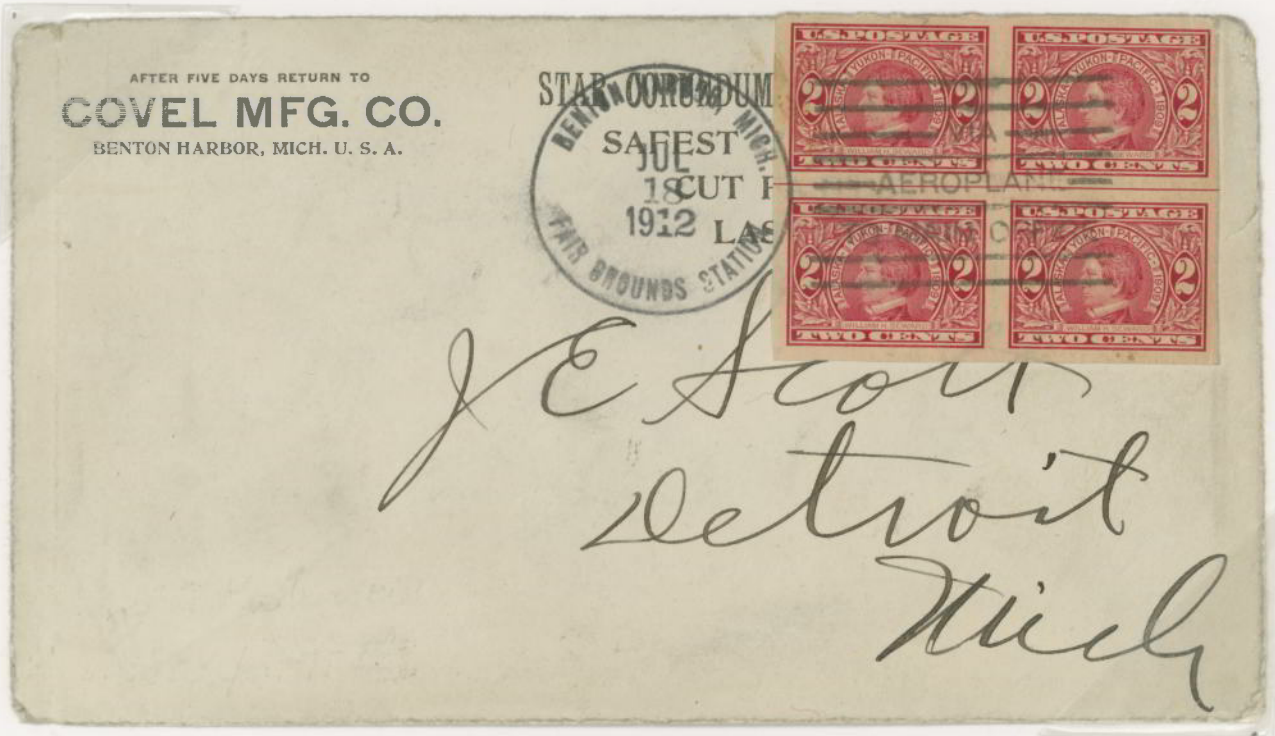 AFTER FIVE DAYS RETURN TO
COVEL MFG. CO.
BENTON HARBOR, MICH. U. S. A.
STAR CORUNDUM
SAFEST
CUT
BENTON HARBOR MICH.
JUL
18
1912
FAIR GROUNDS STATION
VIA
AEROPLANE
U.S. POSTAGE
ALASKA-YUKON-PACIFIC-1909
2 2
WILLIAM H. SEWARD
TWO CENTS
U.S. POSTAGE
ALASKA-YUKON-PACIFIC-1909
2 2
WILLIAM H. SEWARD
TWO CENTS
U.S. POSTAGE
ALASKA-YUKON-PACIFIC-1909
2 2
WILLIAM H. SEWARD
TWO CENTS
U.S. POSTAGE
ALASKA-YUKON-PACIFIC-1909
2 2
WILLIAM H. SEWARD
TWO CENTS
J E Scott
Detroit
Mich